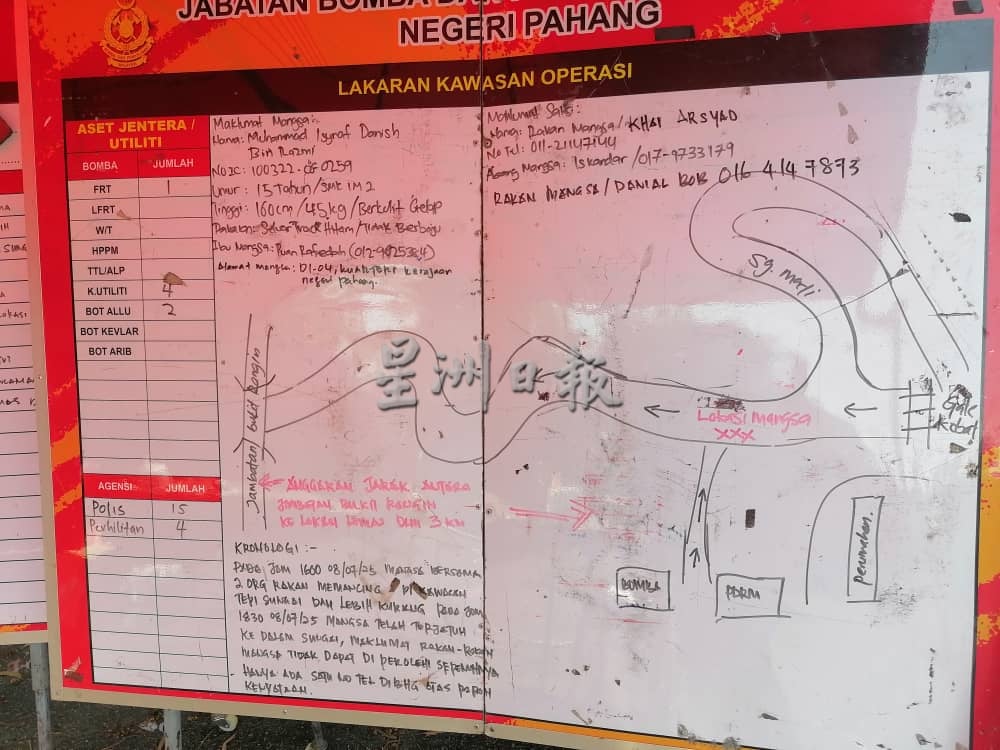 JABATAN BOMBA DA
NEGERI PAHANG
LAKARAN KAWASAN OPERASI
ASET JENTERA /
UTILITI
BOMBA JUMLAH
FRT 1
LFRT
W/T
HPPM
TTL/ALP
K.UTILITI 4
BOT ALLU 2
BOT KEVLAR
BOT ARIB
AGENSI JUMLAH
Polis 15
Perhilitan 4
Maklumat Mangsa:
Nama: Muhammad Isyraf Danish
Bin Rozmi
No IC: 100322-06-0259
Umur: 15 Tahun/SMK 1M2
Tinggi: 160cm/45kg/Berkulit Gelap
Pakaian: Seluar Track Hitam/Tidak Berbaju
Ibu Mangsa: Puan
Alamat mangsa: D1-04, kerajaan
negeri pahang.
Maklumat Saksi:
Rakan Mangsa/KHAI ARSYAD
No Tel: 011-21147144
Abang Mangsa: Iskandar/017-9733179
RAKAN MANGSA/DANIAL BOB 016 414 7873
Sg. mati
星洲日報
Lokasi Mangsa
XXX
Jambatan Bukit Rangin
ANGGARAN JARAK ANTARA
JAMBATAN BUKIT RANGIN
KE LOKASI LEMAS 3 KM
BOMBA
PDRM
perumahan
KRONOLOGI :-
PADA JAM 1600 08/07/25 MANGSA BERSAMA
2 ORG RAKAN MEMANCING DI KAWASAN
TEPI SUNGAI DAN LEBIH KURANG PADA JAM
1830 08/07/25 MANGSA TELAH TERJATUH
KE DALAM SUNGAI, MAKLUMAT RAKAN-RAKAN
MANGSA TIDAK DAPAT DI PEROLEHI SEPENUHNYA
HANYA ADA SATU NO TEL DI ATAS PAPAN
KENYATAAN.